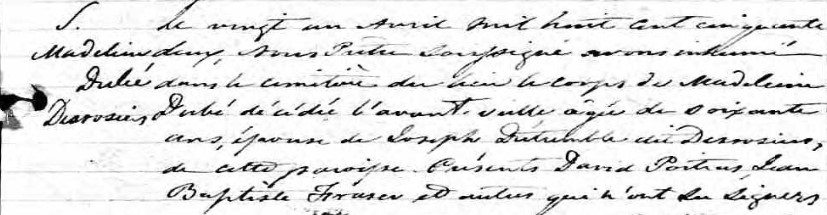 S. Le vingt un Avril mil huit cent cinquante
Madeleine deux, Nous Prêtre Soussigné avons inhumé
Dubé dans le cimetière du lieu le corps de Madeleine
Desrosiers Dubé décédée l'avant-veille âgée de soixante
ans, épouse de Joseph Dutremble dit Desrosiers,
de cette paroisse. Présents David Poitras, Jean
Baptiste Fraser et autres qui n'ont su signer